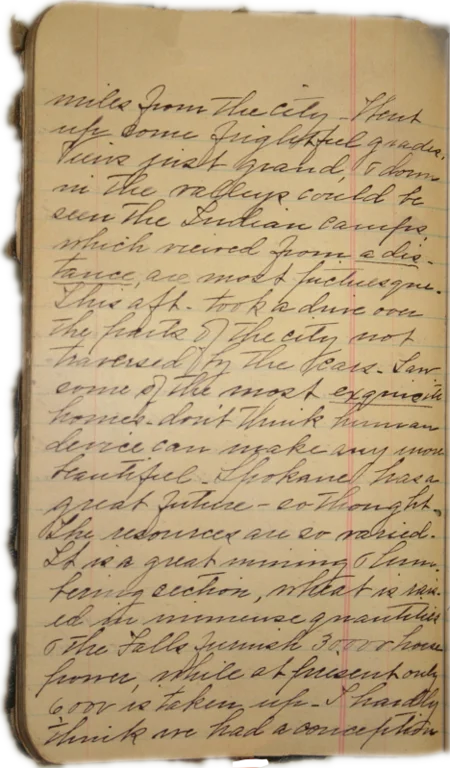 miles from the city - Went
up some frightful grades.
Views just grand, & down
in the valleys could be
seen the Indian camps,
which viewed from a dis-
tance, are most picturesque.
This aft. took a drive over
the parts of the city not
traversed by the cars. Saw
some of the most exquisite
homes - don't think human
device can make any more
beautiful - Spokane has a
great future - so thought.
The resources are so varied.
It is a great mining & lum-
bering section, wheat is rais-
ed in immense quantities
& the Falls furnish 30000 horse
power, while at present only
6000 is taken up - I hardly
think we had a conception